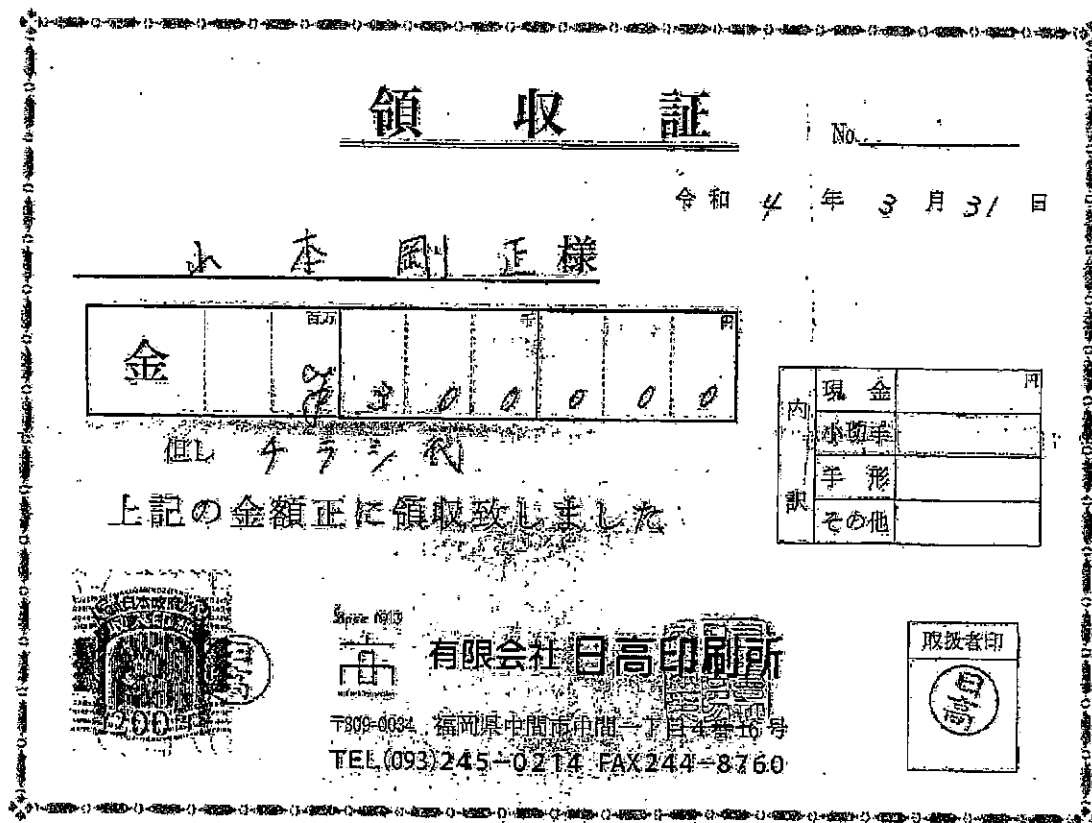 領収証
No.
令和 4 年 3 月 31 日
山本剛正様
金 百万 千 円
¥ 3 0 0 0 0 0
但し チラシ代
上記の金額正に領収致しました
内訳
現金 円
小切手
手形
その他
日本政府
200
日高
有限会社日高印刷所
〒809-0034 福岡県中間市中間一丁目4番16号
TEL(093)245-0214 FAX244-8760
取扱者印
日高